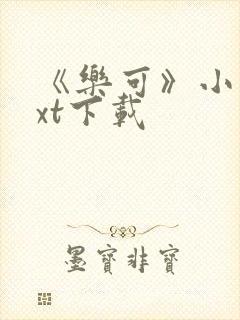 《樂可》小
xt下載
墨寶非寶